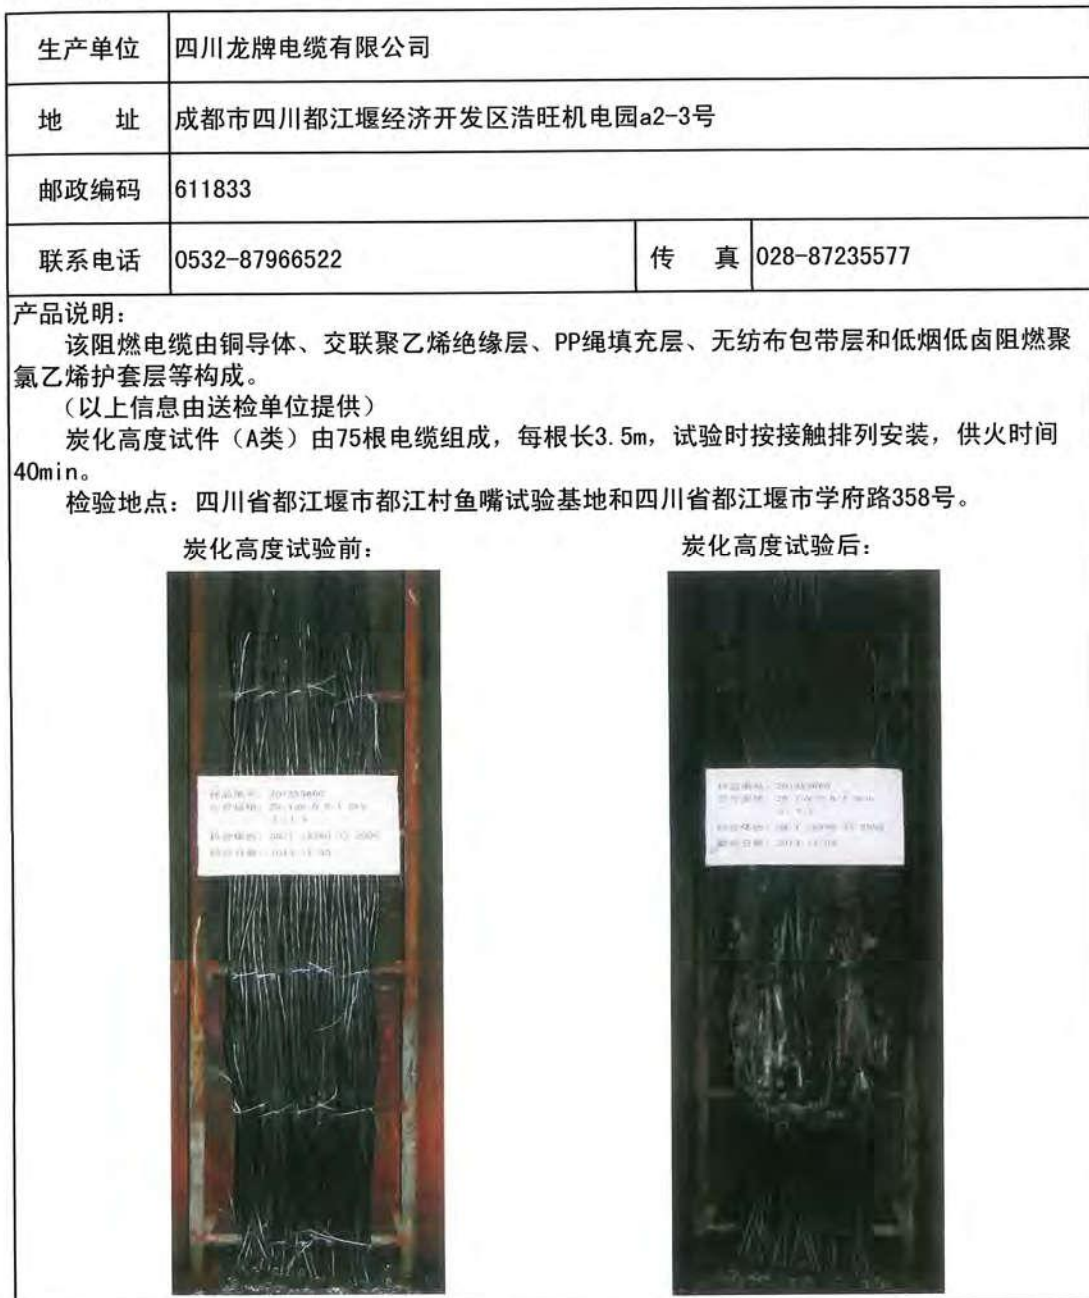 生产单位 四川龙牌电缆有限公司
地 址 成都市四川都江堰经济开发区浩旺机电园a2-3号
邮政编码 611833
联系电话 0532-87966522 传 真 028-87235577
产品说明：
该阻燃电缆由铜导体、交联聚乙烯绝缘层、PP绳填充层、无纺布包带层和低烟低卤阻燃聚
氯乙烯护套层等构成。
（以上信息由送检单位提供）
炭化高度试件（A类）由75根电缆组成，每根长3.5m，试验时按接触排列安装，供火时间
40min。
检验地点：四川省都江堰市都江村鱼嘴试验基地和四川省都江堰市学府路358号。
炭化高度试验前： 炭化高度试验后：